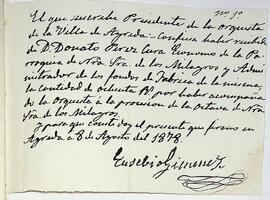 nº 50
El que suscribe Presidente de la Orquesta
de la Villa de Agreda = Confiesa haber recibido
de D. Donato Perez Cura Economo de la Pa-
rroquia de Nra Sra. de los Milagros y Admi-
nistrador de los fondos de Fabrica de la misma,
la cantidad de ochenta Rs por haber acompaña-
do la Orquesta á la procesion de la Octava de Nra
Sra. de los Milagros.
y para que conste doy el presente que firmo en
Agreda á 8 de Agosto del 1878.
Eusebio Gimenez